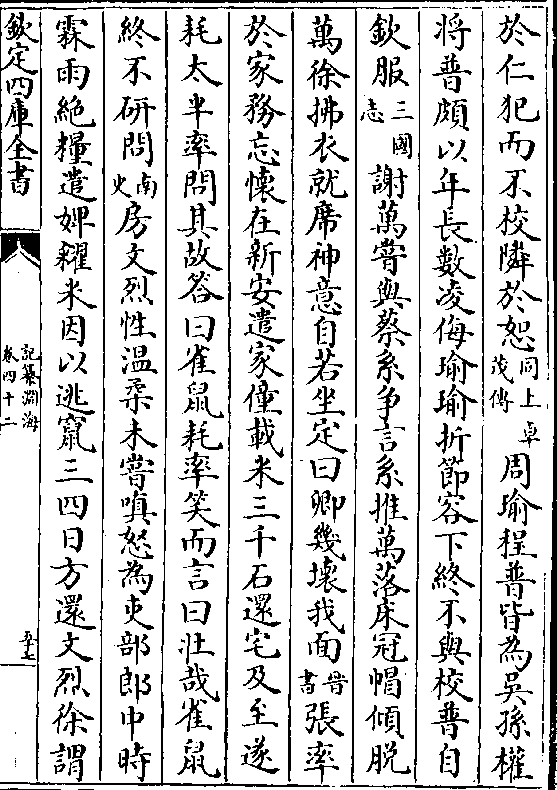 於仁犯而不校隣於恕同上卓茂傳周瑜程普皆為吳孫權
将普頗以年長數凌侮瑜瑜折節容下終不與校普自
欽服三國志謝萬嘗與蔡系争言系推萬落床冠帽傾脱
萬徐拂衣就席神意自若坐定曰卿幾壊我面晉書張率
於家務忘懷在新安遣家僮載米三千石還宅及至遂
耗太半率問其故答曰雀鼠耗率笑而言曰壮哉雀鼠
終不研問南史房文烈性温柔未嘗嗔怒為吏部郎中時
霖雨絶糧遣婢糴米因以逃竄三四日方還文烈徐謂
欽定四庫全書
記纂淵海
卷四十二
五十七